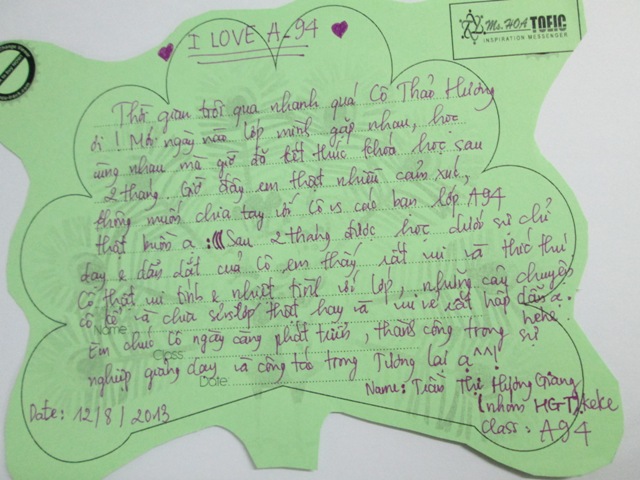 I LOVE A-94
Ms. HOA TOEIC
INSPIRATION MESSENGER
Thời gian trôi qua nhanh quá Cô Thảo Hương
ơi ! Mới ngày nào lớp mình gặp nhau, học
cùng nhau mà giờ đã kết thúc khóa học sau
2 tháng. Giờ đây em thật nhiều cảm xúc,
không muốn chia tay với cô vs các bạn lớp A94
thật buồn ạ :((( Sau 2 tháng được học dưới sự chỉ
dạy & dẫn dắt của cô em thấy rất vui và thích thú
Cô thật vui tính & nhiệt tình với lớp, những câu chuyện
cô kể và chưa lớp thật hay và vui vẻ rất hấp dẫn ạ.
hehe
Em chúc cô ngày càng phát triển, thành công trong sự
nghiệp giảng dạy và công tác trong Tương lai ạ ^^!
Name
Class
Date
Name: Trần Thị Hương Giang
(nhóm HGT) keke
Date: 12/8/2013
Class: A94